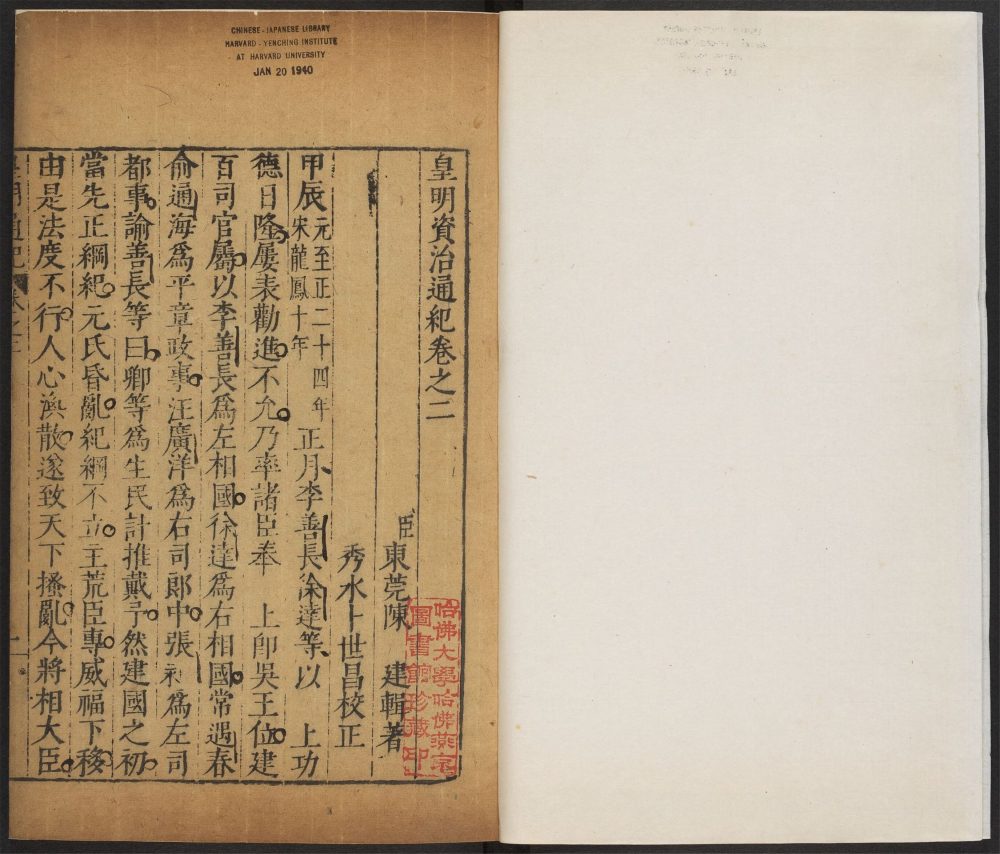 CHINESE-JAPANESE LIBRARY
HARVARD-YENCHING INSTITUTE
AT HARVARD UNIVERSITY
JAN 20 1940
皇明資治通紀卷之二
臣東莞陳 建輯著
秀水卜世昌校正
甲辰元至正二十四年宋龍鳳十年正月李善長徐達等以 上功
德日隆屢表勸進不允乃率諸臣奉 上卽吳王位建
百司官屬以李善長爲左相國徐達爲右相國常遇春
俞通海爲平章政事汪廣洋爲右司郎中張昶爲左司
都事諭善長等曰卿等爲生民計推戴予然建國之初
當先正綱紀元氏昏亂紀綱不立主荒臣專威福下移
由是法度不行人心渙散遂致天下搔亂今將相大臣
皇明通紀 卷之二 一
哈佛大學哈佛燕京
圖書館珍藏印